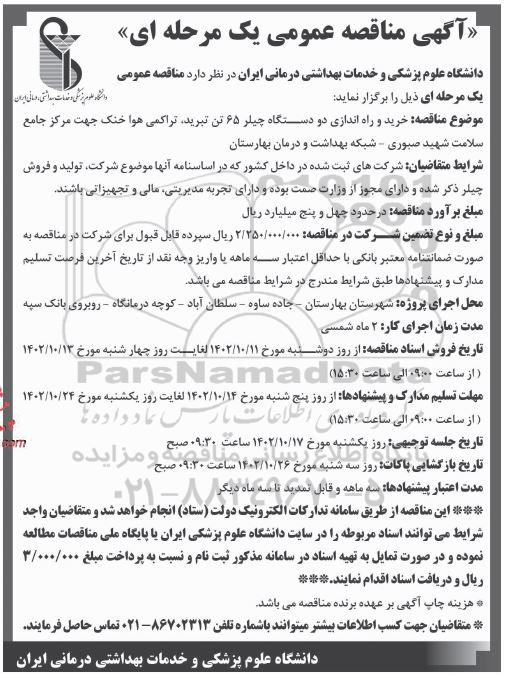 «آگهی مناقصه عمومی یک مرحله ای»
دانشگاه علوم پزشکی و خدمات بهداشتی درمانی ایران
دانشگاه علوم پزشکی و خدمات بهداشتی درمانی ایران در نظر دارد مناقصه عمومی
یک مرحله ای ذیل را برگزار نماید:
موضوع مناقصه: خرید و راه اندازی دو دستگاه چیلر ۶۵ تن تبرید، تراکمی هوا خنک جهت مرکز جامع
سلامت شهید صبوری - شبکه بهداشت و درمان بهارستان
شرایط متقاضیان: شرکت های ثبت شده در داخل کشور که در اساسنامه آنها موضوع شرکت، تولید و فروش
چیلر ذکر شده و دارای مجوز از وزارت صمت بوده و دارای تجربه مدیریتی، مالی و تجهیزاتی باشند.
مبلغ برآورد مناقصه: درحدود چهل و پنج میلیارد ریال
مبلغ و نوع تضمین شرکت در مناقصه: ۲/۲۵۰/۰۰۰/۰۰۰ ریال سپرده قابل قبول برای شرکت در مناقصه به
صورت ضمانتنامه معتبر بانکی با حداقل اعتبار سه ماهه یا واریز وجه نقد از تاریخ آخرین فرصت تسلیم
مدارک و پیشنهادها طبق شرایط مندرج در شرایط مناقصه می باشد.
محل اجرای پروژه: شهرستان بهارستان - جاده ساوه - سلطان آباد - کوچه درمانگاه - روبروی بانک سپه
مدت زمان اجرای کار: ۲ ماه شمسی
تاریخ فروش اسناد مناقصه: از روز دوشنبه مورخ ۱۴۰۲/۱۰/۱۱ لغایت روز چهار شنبه مورخ ۱۴۰۲/۱۰/۱۳
( از ساعت ۰۹:۰۰ الی ساعت ۱۵:۳۰)
مهلت تسلیم مدارک و پیشنهادها: از روز پنج شنبه مورخ ۱۴۰۲/۱۰/۱۴ لغایت روز یکشنبه مورخ ۱۴۰۲/۱۰/۲۴
( از ساعت ۰۹:۰۰ الی ساعت ۱۵:۳۰)
تاریخ جلسه توجیهی: روز یکشنبه مورخ ۱۴۰۲/۱۰/۱۷ ساعت ۰۹:۳۰ صبح
تاریخ بازگشایی پاکات: روز سه شنبه مورخ ۱۴۰۲/۱۰/۲۶ ساعت ۰۹:۳۰ صبح
مدت اعتبار پیشنهادها: سه ماهه و قابل تمدید تا سه ماه دیگر
*** این مناقصه از طریق سامانه تدارکات الکترونیک دولت (ستاد) انجام خواهد شد و متقاضیان واجد
شرایط می توانند اسناد مربوطه را در سایت دانشگاه علوم پزشکی ایران یا پایگاه ملی مناقصات مطالعه
نموده و در صورت تمایل به تهیه اسناد در سامانه مذکور ثبت نام و نسبت به پرداخت مبلغ ۳/۰۰۰/۰۰۰
ریال و دریافت اسناد اقدام نمایند.***
* هزینه چاپ آگهی بر عهده برنده مناقصه می باشد.
* متقاضیان جهت کسب اطلاعات بیشتر میتوانند باشماره تلفن ۸۶۷۰۲۳۱۳-۰۲۱ تماس حاصل فرمایند.
دانشگاه علوم پزشکی و خدمات بهداشتی درمانی ایران
ParsNamadData
پایگاه اطلاع رسانی مناقصه و مزایده